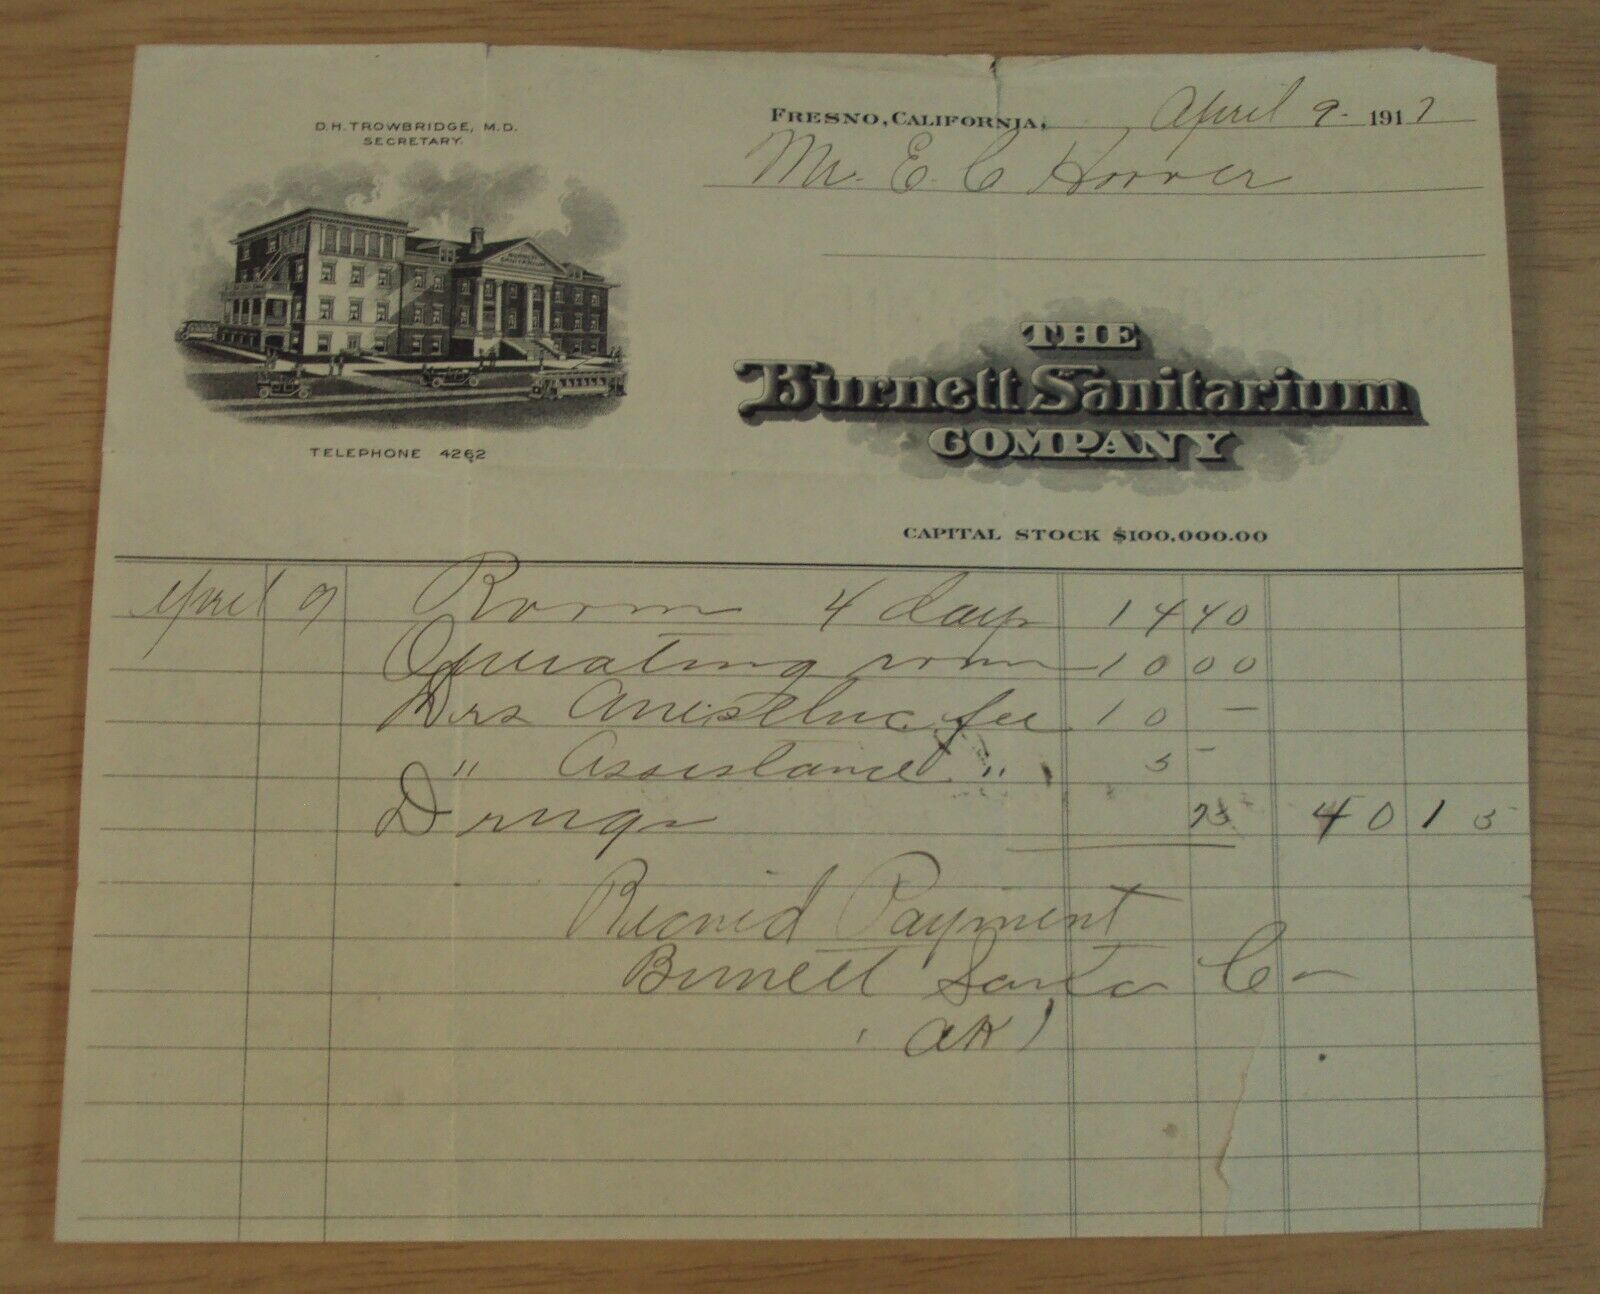 D. H. TROWBRIDGE, M.D.
SECRETARY.
BURNETT SANITARIUM
TELEPHONE 4262
FRESNO, CALIFORNIA, April 9 - 1917
Mr. E. C Hoover
THE
Burnett Sanitarium
COMPANY
CAPITAL STOCK $100,000.00
April 9 Room 4 days 14 40
Operating room 10 00
Drs Anisthic fee 10 –
" Assistance " 5 –
Drugs 75 40 15
Received Payment
Burnett Santa Co
AK